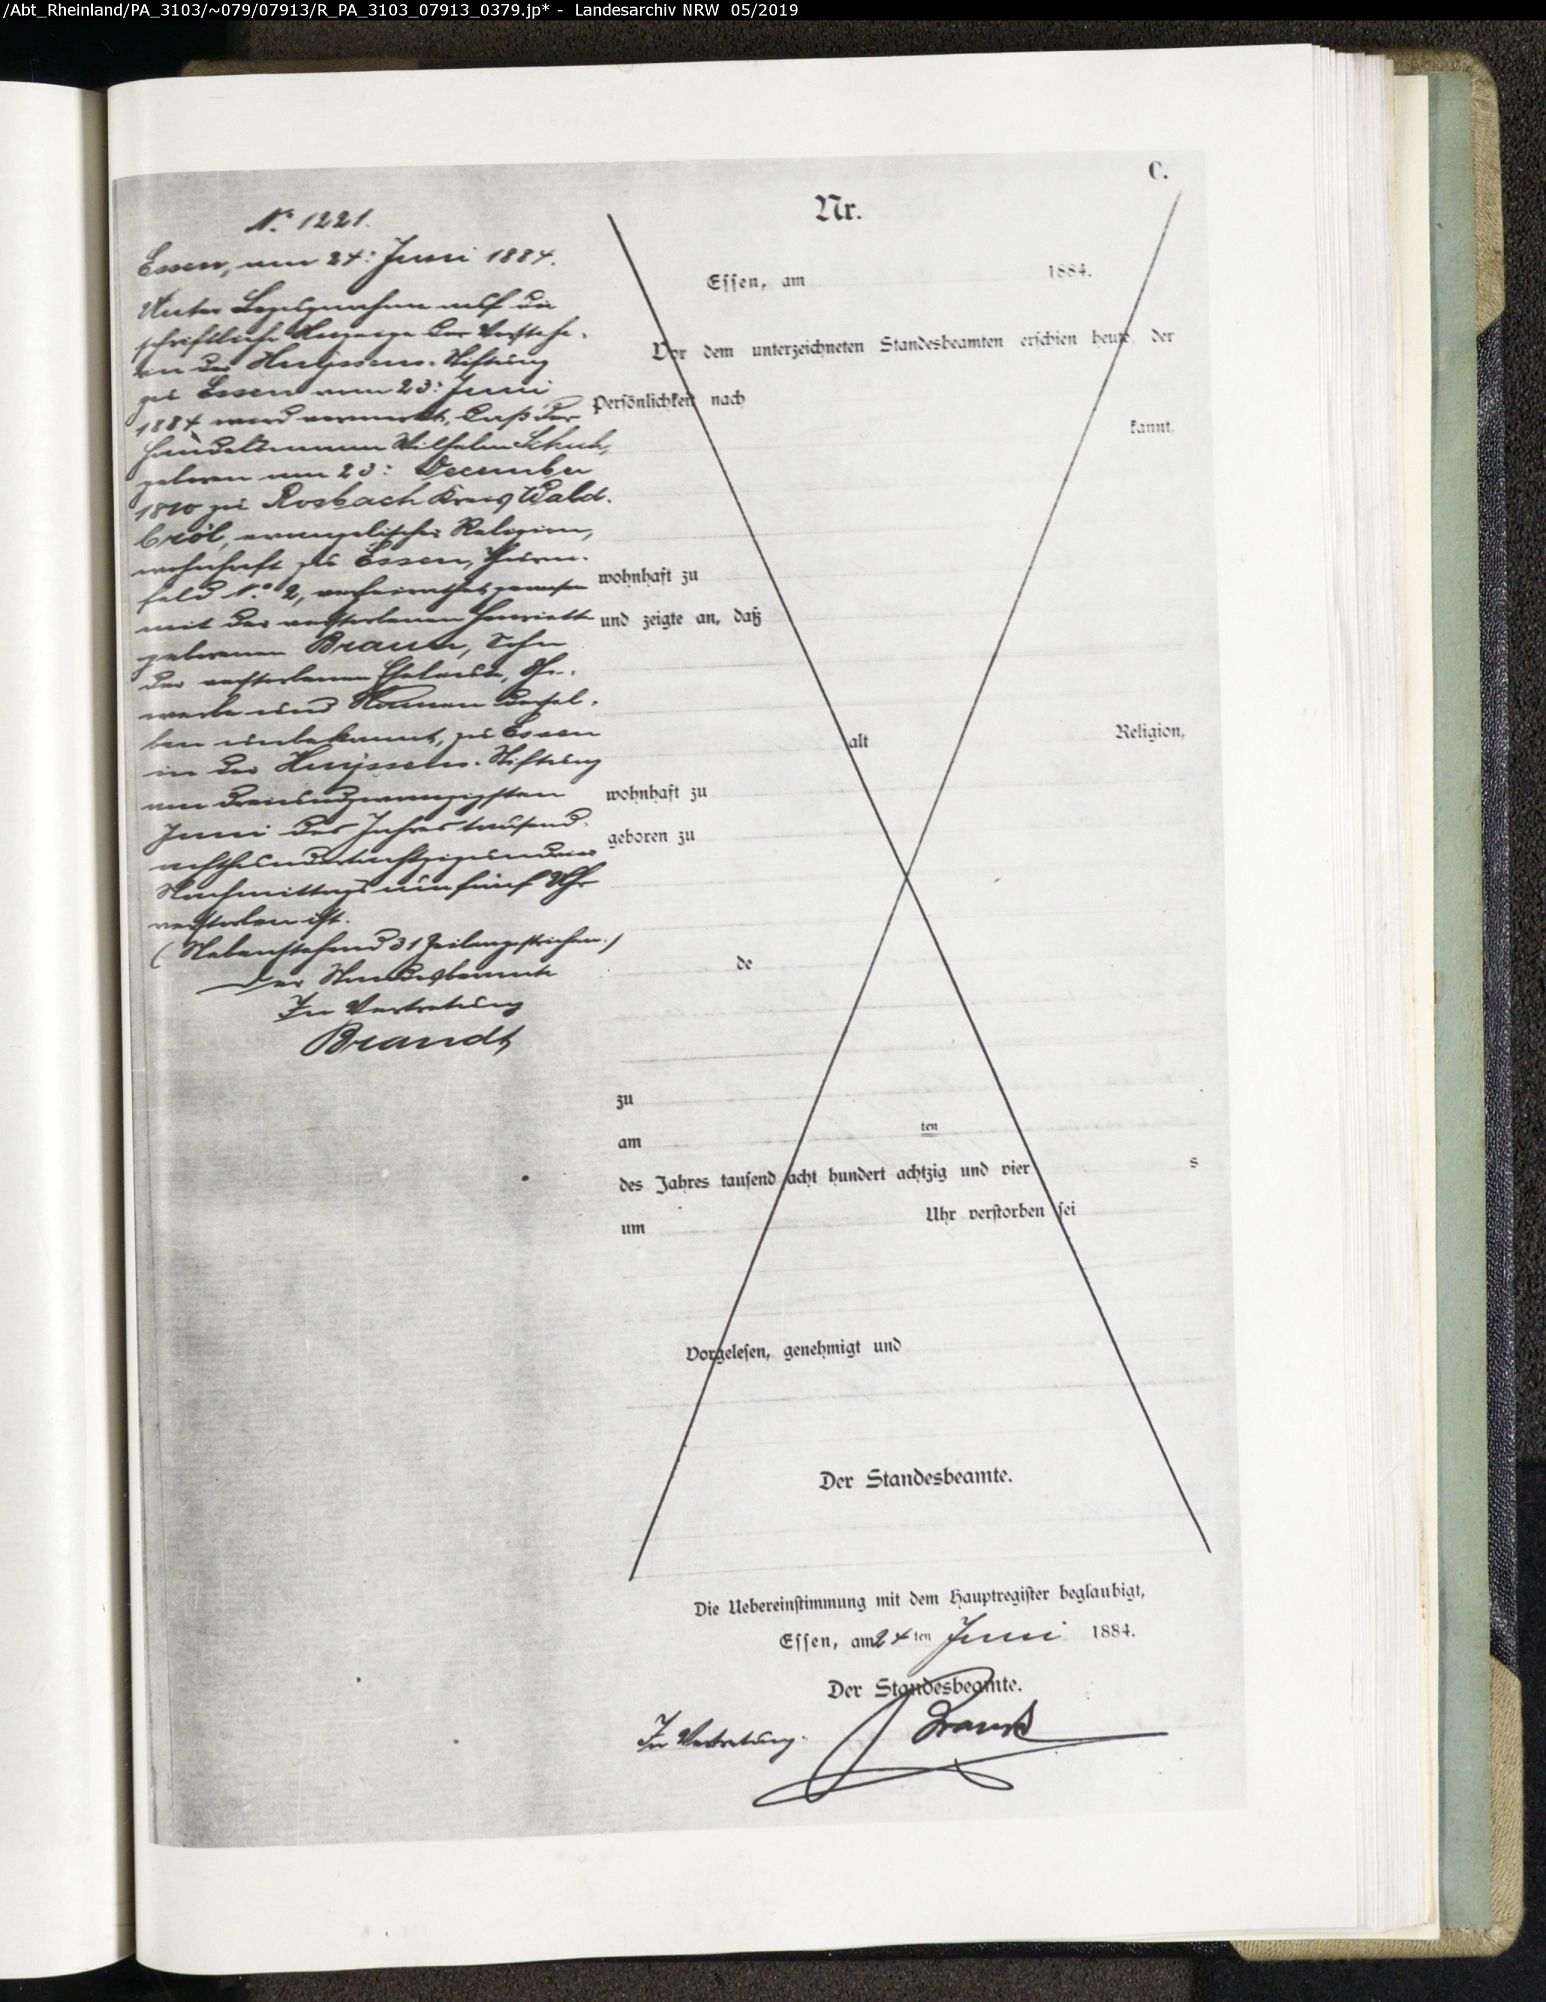 /Abt_Rheinland/PA_3103/~079/07913/R_PA_3103_07913_0379.jp* - Landesarchiv NRW 05/2019
C.
N° 1221.
Essen, am 24: Juni 1884.
Unter Bezugnahme auf die
schriftliche Anzeige der Vorstehe-
rin der Huÿssens-Stiftung
zu Essen vom 23: Juni
1884 wird vermerkt, daß der
Handelsmann Wilhelm Schuh,
geboren am 23: December
1810 zu Rosbach Kreis Wald-
bröl, evangelischer Religion,
wohnhaft zu Essen, Thurm-
feld N° 2, verheirathet gewesen
mit der verstorbenen Henriette
geborenen Braun, Sohn
der verstorbenen Eheleute, Ge-
werbe und Namen dersel-
ben unbekannt, zu Essen
in der Huÿssens-Stiftung
am dreiundzwanzigsten
Juni des Jahres tausend-
achthundertachtzigundvier
Nachmittags um fünf Uhr
verstorben ist.
(Nebenstehend 31 Zeilen gestrichen.)
Der Standesbeamte
In Vertretung
Brandt
Nr.
Essen, am 1884.
Vor dem unterzeichneten Standesbeamten erschien heute, der
Persönlichkeit nach
kannt,
wohnhaft zu
und zeigte an, daß
alt Religion,
wohnhaft zu
geboren zu
de
zu
am ten
des Jahres tausend acht hundert achtzig und vier s
um Uhr verstorben sei
Vorgelesen, genehmigt und
Der Standesbeamte.
Die Uebereinstimmung mit dem Hauptregister beglaubigt,
Essen, am 24ten Juni 1884.
Der Standesbeamte.
In Vertretung.